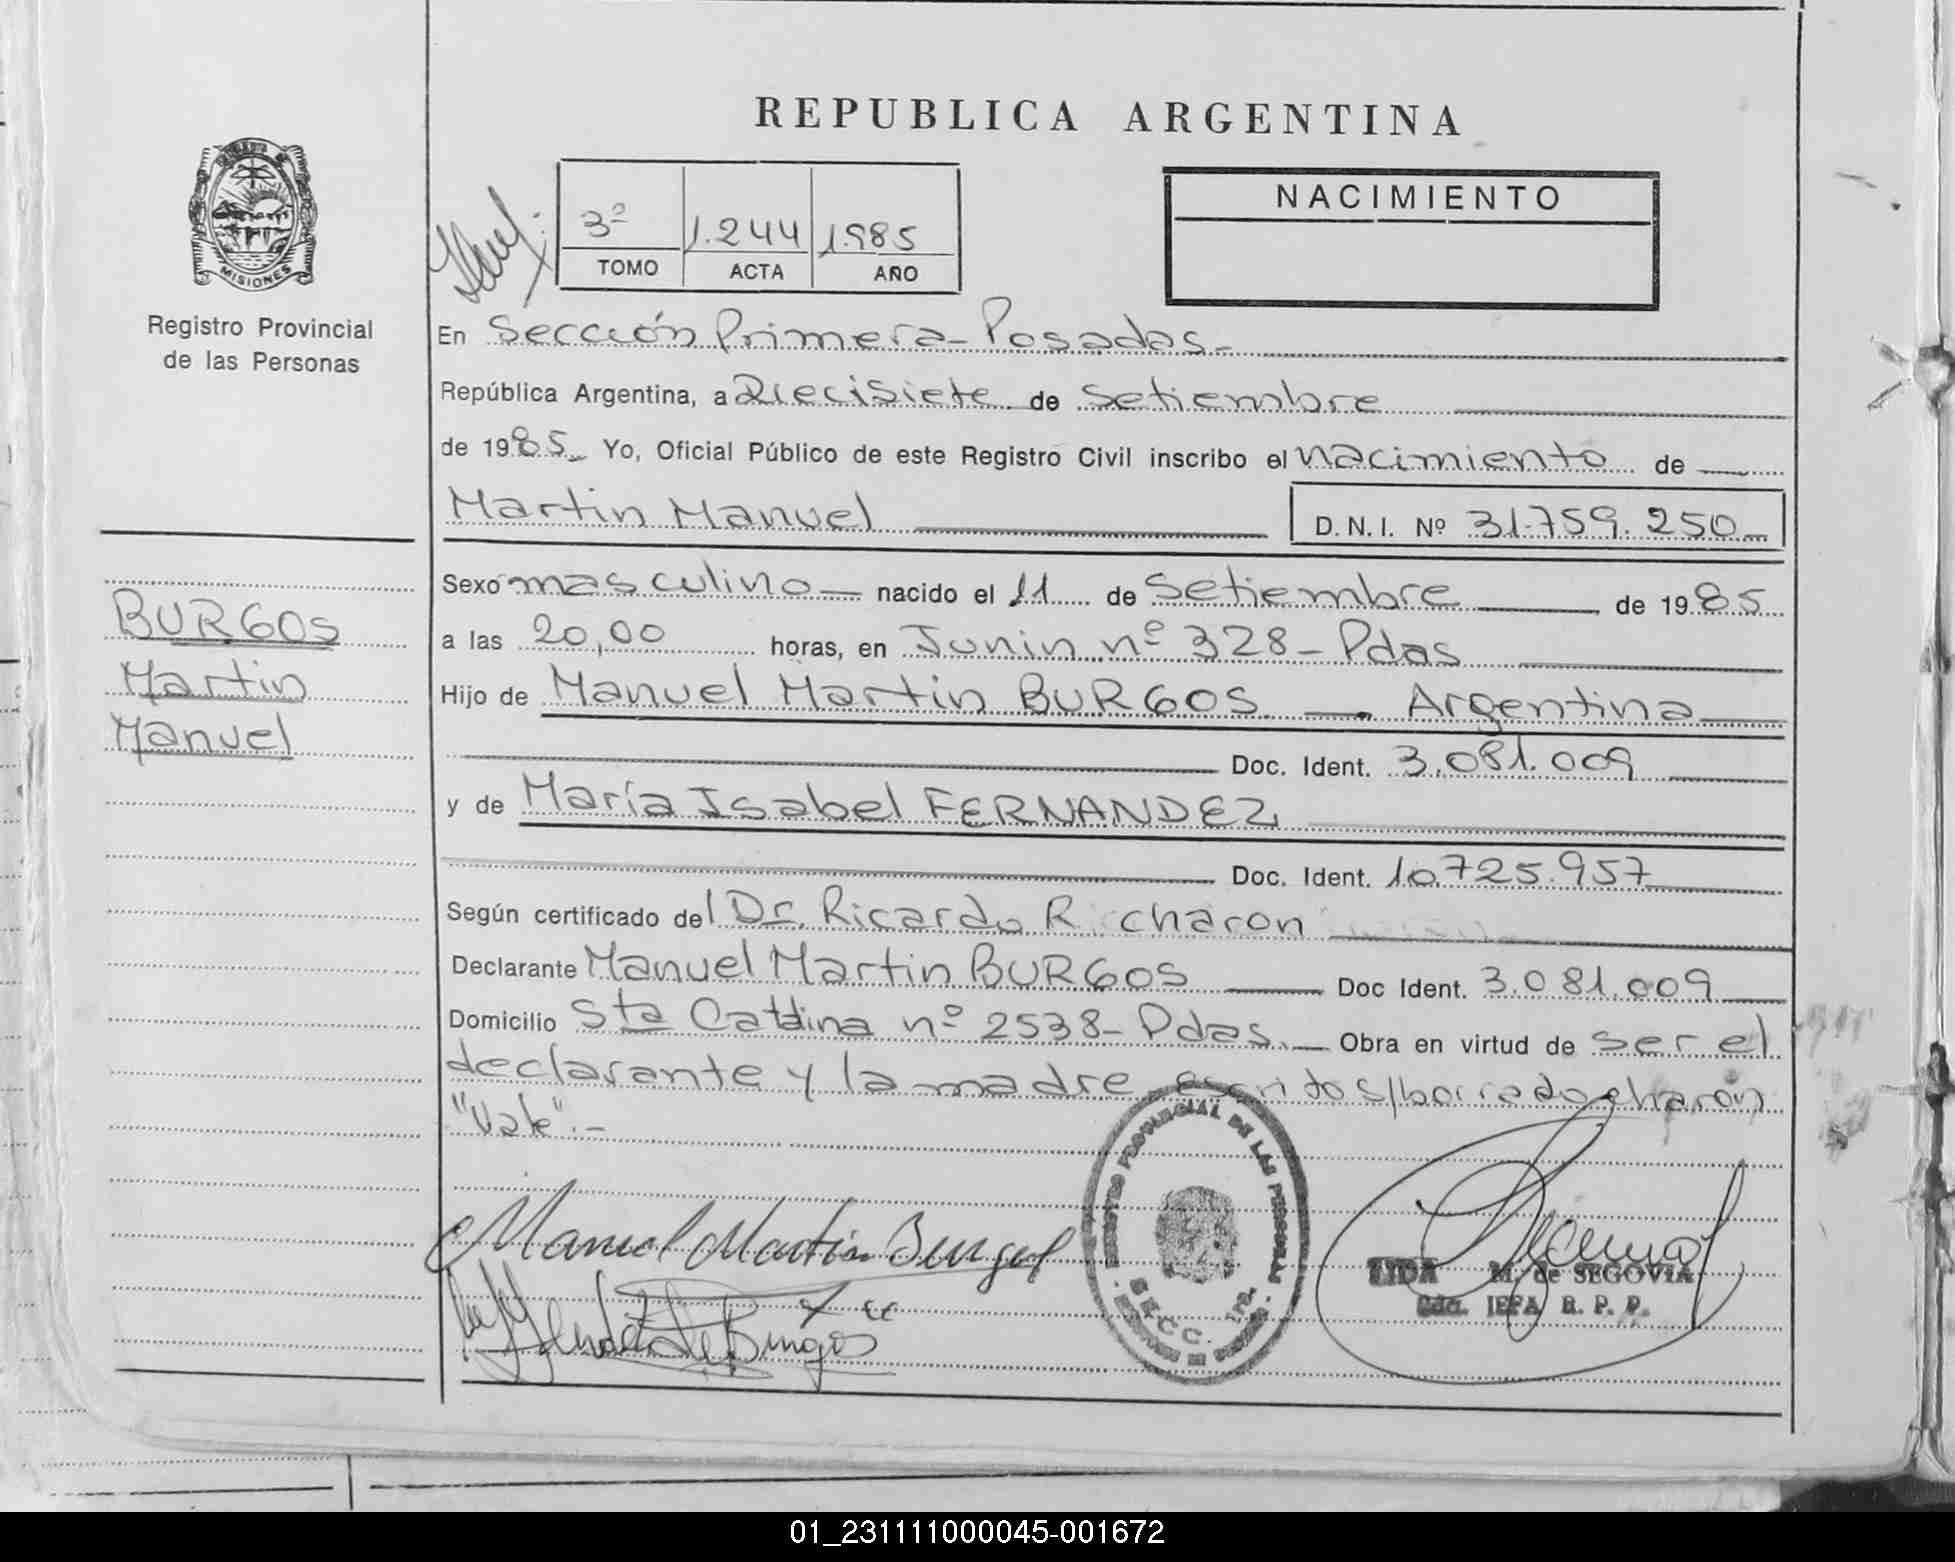 REPUBLICA ARGENTINA
MISIONES
Registro Provincial
de las Personas
3º 1.244 1985
TOMO ACTA AÑO
NACIMIENTO
En Sección Primera - Posadas.-
República Argentina, a Diecisiete de Setiembre
de 1985 Yo, Oficial Público de este Registro Civil inscribo el nacimiento de
Martin Manuel D.N.I. Nº 31.759.250
BURGOS
Martin
Manuel
Sexo masculino nacido el 11 de Setiembre de 1985
a las 20,00 horas, en Junin nº 328 - Pdas
Hijo de Manuel Martin BURGOS — Argentina
Doc. Ident. 3.081.009
y de María Isabel FERNANDEZ
Doc. Ident. 10.725.957
Según certificado del Dr. Ricardo R charon
Declarante Manuel Martin BURGOS Doc Ident. 3.081.009
Domicilio Sta Catalina nº 2538 - Pdas. Obra en virtud de ser el
declarante y la madre escrito s/borrado charón
"Vale".-
Manuel Martin Burgos
de Burgos
REGISTRO PROVINCIAL DE LAS PERSONAS
SECC. 1ra.
M. de SEGOVIA
JEFA R. P. P.
01_231111000045-001672